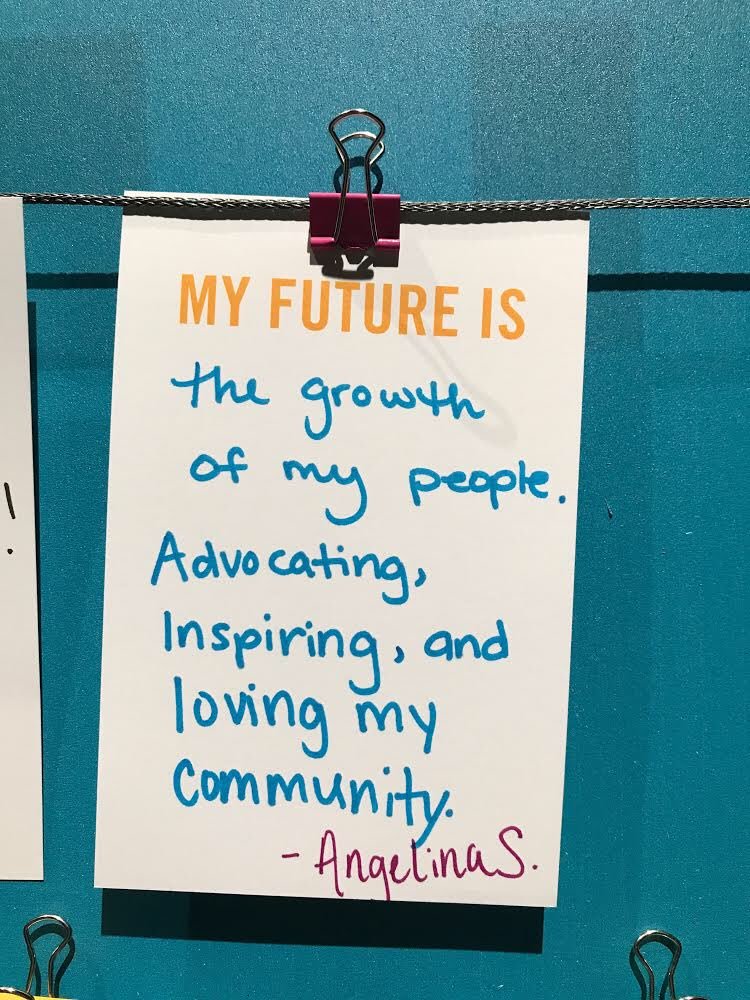 MY FUTURE IS
the growth
of my people.
Advocating,
Inspiring, and
loving my
community.
- Angelina S.